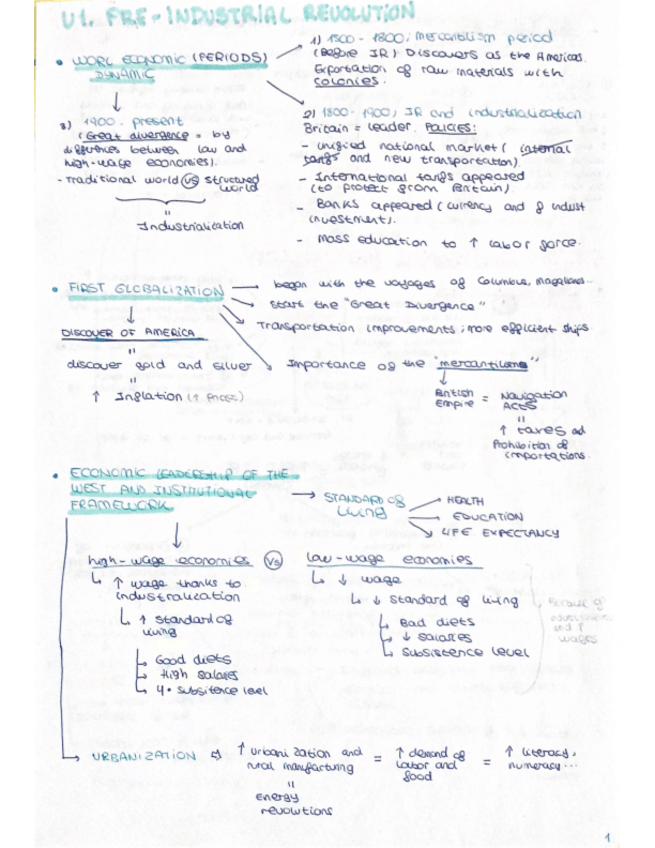 U1. PRE-INDUSTRIAL REVOLUTION
• WORL ECONOMIC (PERIODS)
DYNAMIC
1) 1500 - 1800; mercantilism period
(Before IR) Discovers as the Americas.
Exportation of raw materials with
colonies.
2) 1800 - 1900; IR and industrialization
Britain = leader. POLICIES:
- Unified national market (internal
tariffs and new transportation).
- International tariffs appeared
(to protect from Britain).
- Banks appeared (currency and
investment).
- Mass education to ↑ labor force.
3) 1900 - present
(Great divergence = by
differences between low and
high-wage economies).
- Traditional world vs structured
world
"
Industrialization
• FIRST GLOBALIZATION
began with the voyages of Columbus, Magallanes...
Start the "Great Divergence"
Transportation improvements; more efficient ships
Importance of the "mercantilism"
British
Empire = Navigation
ACTS
"
↑ taxes and
Prohibition of
importations.
DISCOVER OF AMERICA
"
discover gold and silver
"
↑ Inflation (↑ Prices)
• ECONOMIC LEADERSHIP OF THE
WEST AND INSTITUTIONAL
FRAMEWORK
STANDARD OF
Living
HEALTH
EDUCATION
LIFE EXPECTANCY
high-wage economies vs low-wage economies
↑ wage thanks to
industralization
↑ standard of
living
Good diets
High salaries
4 • subsitence level
↓ wage
↓ standard of living
Bad diets
↓ salaries
Subsistence level
Because of
and ↑
wages
URBANIZATION ⇒ ↑ urbanization and
rural manufacturing = ↑ demand of
labor and
food = ↑ literacy,
numeracy...
"
energy
revolutions
1